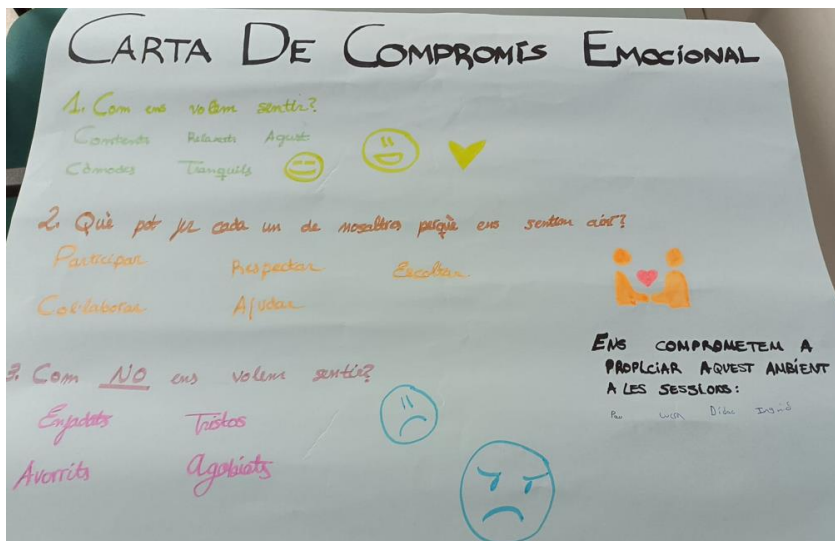 CARTA DE COMPROMÍS EMOCIONAL
1. Com ens volem sentir?
Contents Relaxats Agust
Còmodes Tranquils
2. Què pot fer cada un de nosaltres perquè ens sentim així?
Participar Respectar Escoltar
Col·laborar Ajudar
3. Com NO ens volem sentir?
Enfadats Tristos
Avorrits Agobiats
ENS COMPROMETEM A
PROPICIAR AQUEST AMBIENT
A LES SESSIONS:
Pau Dídac Ingrid